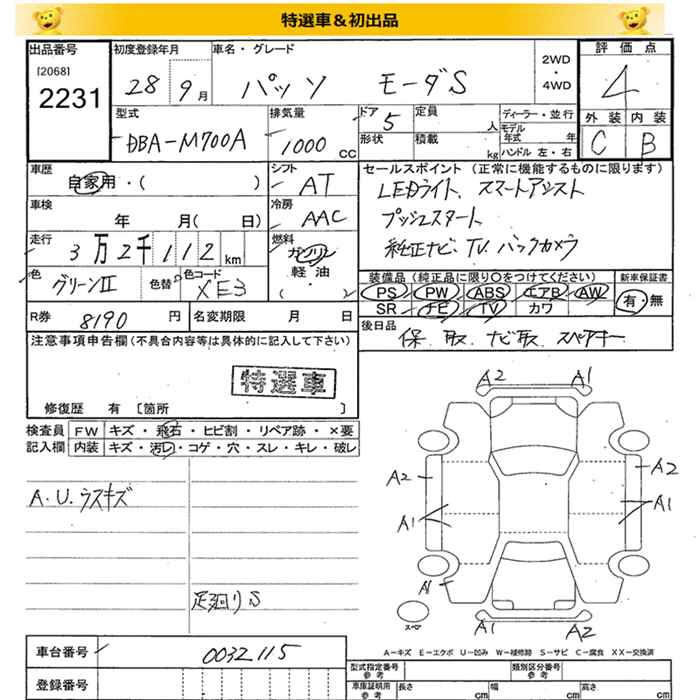 特選車＆初出品
出品番号 初度登録年月 車名・グレード 2WD・4WD 評価点
[2068]
2231 28 9月 パッソ モーダS 4
外装 内装
C B
型式 排気量 ドア 定員 人 ディーラー・並行
DBA-M700A 1000 CC 5 形状 積載 kg モデル年式 年
ハンドル 左・右
車歴 シフト セールスポイント（正常に機能するものに限ります）
自家用・( ) AT LEDライト、スマートアシスト
車検 冷房 プッシュスタート
年 月( 日) AAC 純正ナビ、TV、バックカメラ
走行 燃料
3万2千112km ガソリン
軽油
( )
色 色替 色コード 装備品（純正品に限り○をつけてください） 新車保証書
グリーンⅡ XE3 PS PW ABS エアB AW 有・無
SR TV カワ
R券 8190 円 名変期限 月 日 後日品
保、取、ナビ取、スペアキー
注意事項申告欄（不具合内容等は具体的に記入して下さい）
特選車
修復歴 有 [箇所 ]
検査員 FW キズ・飛石・ヒビ割・リペア跡・×要
記入欄 内装 キズ・汚レ・コゲ・穴・スレ・キレ・破レ
A2 A1
A2 A2
A.U.ウスキズ
A1 A1
A1
足廻りS
スペア
A1 A2
A－キズ E－エクボ U－凹み W－補修跡 S－サビ C－腐食 XX－交換済
車台番号 0032115
型式指定番号 参考 類別区分番号 参考
登録番号
車庫証明用 参考 長さ cm 幅 cm 高さ cm